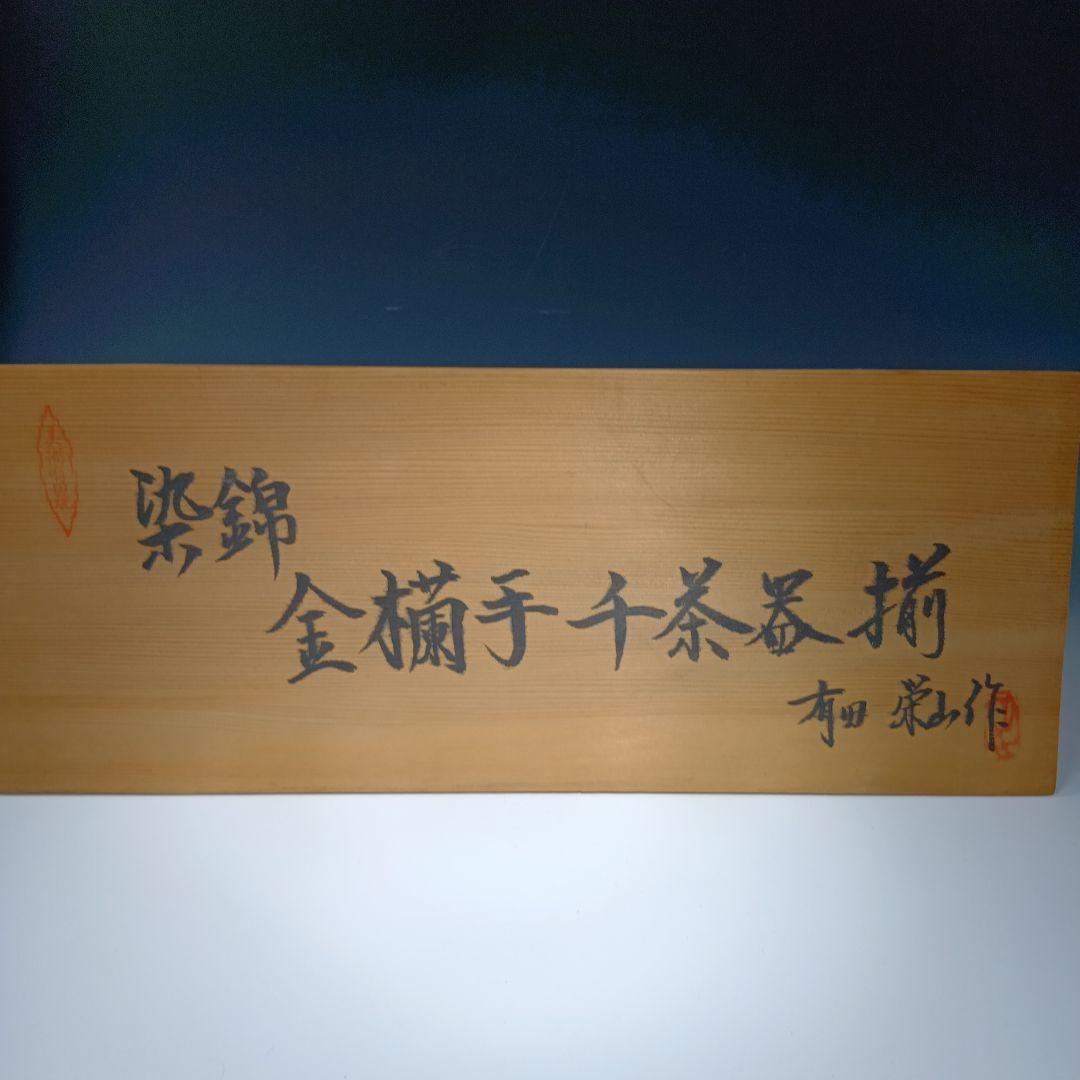 染錦
金欄手千茶器揃
有田 栄山作